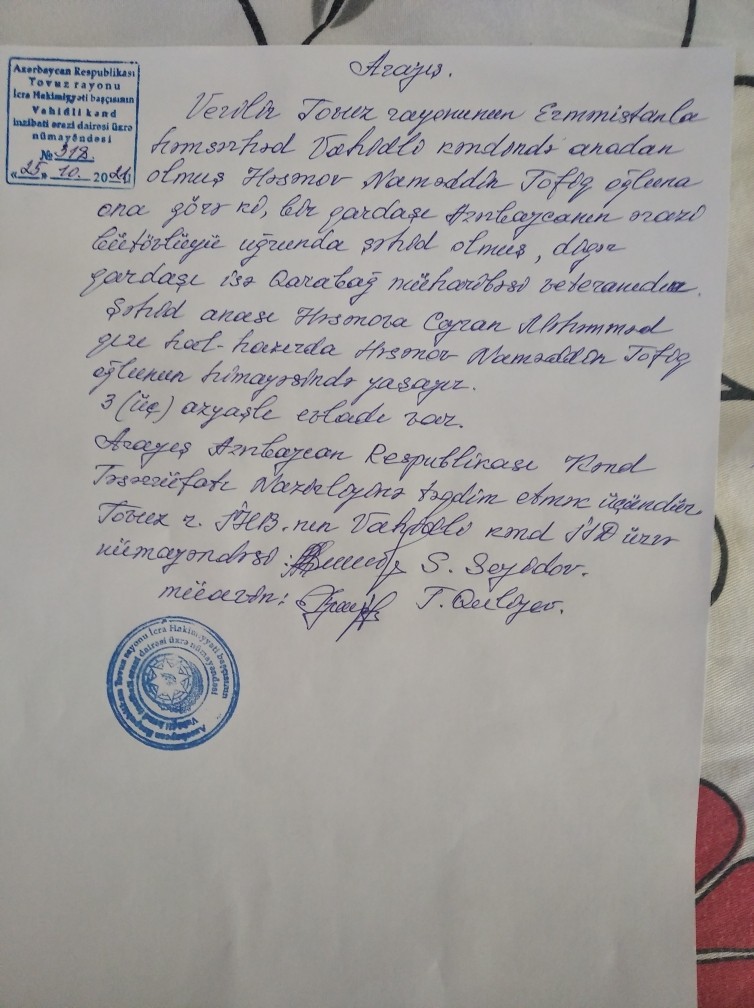 Azərbaycan Respublikası
Tovuz rayonu
İcra Hakimiyyəti başçısının
Vahidli kənd
inzibati ərazi dairəsi üzrə
nümayəndəsi
№ 318
"25" 10. 2021
Arayış.
Verilir Tovuz rayonunun Ermənistanla
həmsərhəd Vahidli kəndində anadan
olmuş Həsənov Naməddin Tofiq oğluna
ona görə ki, bir qardaşı Azərbaycanın ərazi
bütövlüyü uğrunda şəhid olmuş, digər
qardaşı isə Qarabağ müharibəsi veteranıdır.
Şəhid anası Həsənova Ceyran Məhəmməd
qızı hal-hazırda Həsənov Naməddin Tofiq
oğlunun himayəsində yaşayır.
3 (üç) azyaşlı evladı var.
Arayış Azərbaycan Respublikası Kənd
Təsərrüfatı Nazirliyinə təqdim etmək üçündür.
Tovuz r. İHB-nın Vahidli kənd İƏD üzrə
nümayəndəsi: S. Seyidov.
müavin: T. Quliyev.
Azərbaycan Respublikası Tovuz rayonu İcra Hakimiyyəti başçısının
Vahidli kənd inzibati ərazi dairəsi üzrə nümayəndəsi